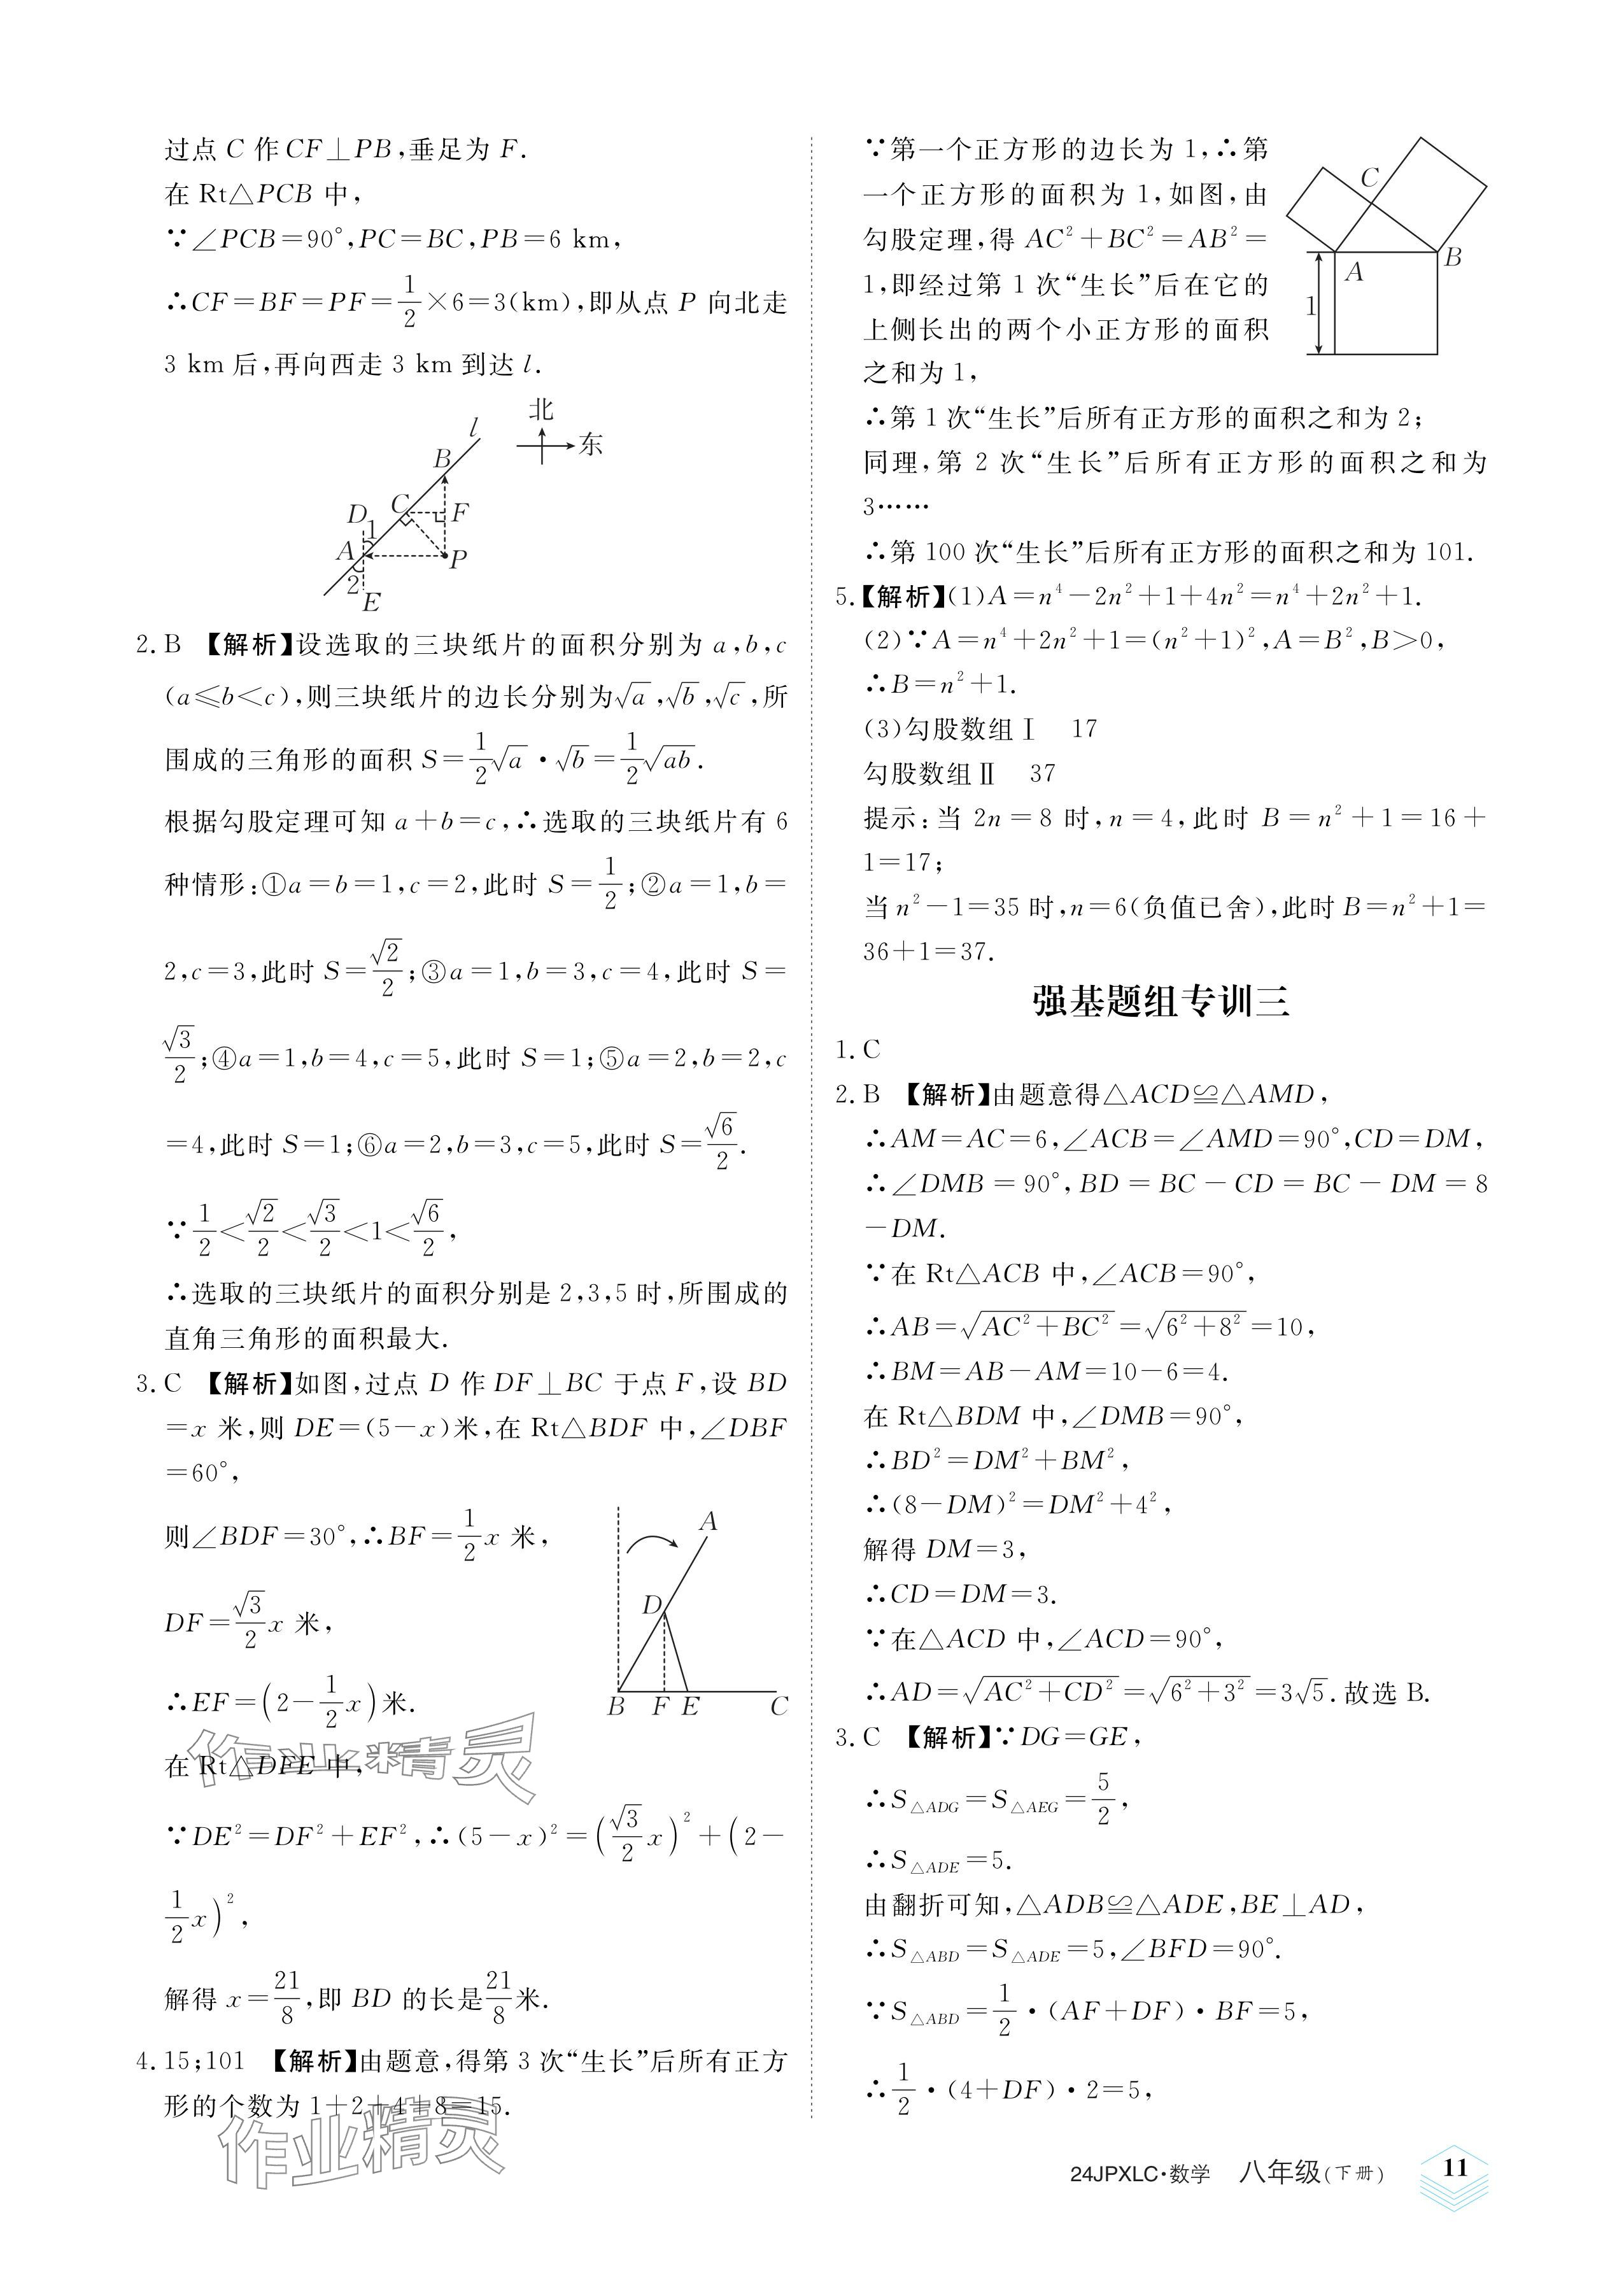 过点 C 作 CF⊥PB,垂足为 F.
在 Rt△PCB 中,
∵∠PCB=90°,PC=BC,PB=6 km,
∴CF=BF=PF=1/2×6=3(km),即从点 P 向北走
3 km 后,再向西走 3 km 到达 l.
北
东
l
B
D
C
F
1
A
P
2
E
2. B 【解析】设选取的三块纸片的面积分别为 a,b,c
(a≤b<c),则三块纸片的边长分别为√a,√b,√c,所
围成的三角形的面积 S=1/2√a·√b=1/2√ab.
根据勾股定理可知 a+b=c,∴选取的三块纸片有 6
种情形:①a=b=1,c=2,此时 S=1/2;②a=1,b=
2,c=3,此时 S=√2/2;③a=1,b=3,c=4,此时 S=
√3/2;④a=1,b=4,c=5,此时 S=1;⑤a=2,b=2,c
=4,此时 S=1;⑥a=2,b=3,c=5,此时 S=√6/2.
∵1/2<√2/2<√3/2<1<√6/2,
∴选取的三块纸片的面积分别是 2,3,5 时,所围成的
直角三角形的面积最大.
3. C 【解析】如图,过点 D 作 DF⊥BC 于点 F,设 BD
=x 米,则 DE=(5-x)米,在 Rt△BDF 中,∠DBF
=60°,
则∠BDF=30°,∴BF=1/2x 米,
DF=√3/2x 米,
∴EF=(2-1/2x)米.
A
D
B F E C
在 Rt△DFE 中,
∵DE²=DF²+EF²,∴(5-x)²=(√3/2x)²+(2-
1/2x)²,
解得 x=21/8,即 BD 的长是21/8米.
4. 15;101 【解析】由题意,得第 3 次“生长”后所有正方
形的个数为 1+2+4+8=15.
作业精灵
作业精灵
∵第一个正方形的边长为 1,∴第
一个正方形的面积为 1,如图,由
勾股定理,得 AC²+BC²=AB²=
1,即经过第 1 次“生长”后在它的
上侧长出的两个小正方形的面积
之和为 1,
C
A
B
1
∴第 1 次“生长”后所有正方形的面积之和为 2;
同理,第 2 次“生长”后所有正方形的面积之和为
3……
∴第 100 次“生长”后所有正方形的面积之和为 101.
5.【解析】(1)A=n⁴-2n²+1+4n²=n⁴+2n²+1.
(2)∵A=n⁴+2n²+1=(n²+1)²,A=B²,B>0,
∴B=n²+1.
(3)勾股数组Ⅰ 17
勾股数组Ⅱ 37
提示:当 2n=8 时,n=4,此时 B=n²+1=16+
1=17;
当 n²-1=35 时,n=6(负值已舍),此时 B=n²+1=
36+1=37.
强基题组专训三
1. C
2. B 【解析】由题意得△ACD≌△AMD,
∴AM=AC=6,∠ACB=∠AMD=90°,CD=DM,
∴∠DMB=90°,BD=BC-CD=BC-DM=8
-DM.
∵在 Rt△ACB 中,∠ACB=90°,
∴AB=√(AC²+BC²)=√(6²+8²)=10,
∴BM=AB-AM=10-6=4.
在 Rt△BDM 中,∠DMB=90°,
∴BD²=DM²+BM²,
∴(8-DM)²=DM²+4²,
解得 DM=3,
∴CD=DM=3.
∵在△ACD 中,∠ACD=90°,
∴AD=√(AC²+CD²)=√(6²+3²)=3√5.故选 B.
3. C 【解析】∵DG=GE,
∴S△ADG=S△AEG=5/2,
∴S△ADE=5.
由翻折可知,△ADB≌△ADE,BE⊥AD,
∴S△ABD=S△ADE=5,∠BFD=90°.
∵S△ABD=1/2·(AF+DF)·BF=5,
∴1/2·(4+DF)·2=5,
24JPXLC·数学 八年级(下册) 11